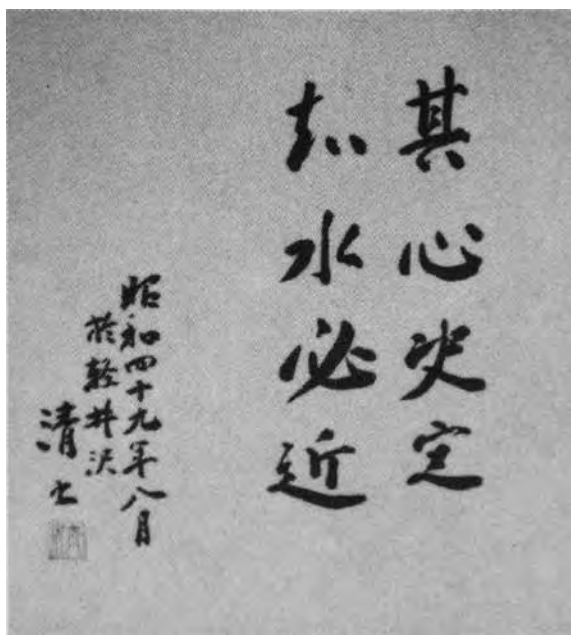 其心决定
知水必近
昭和四十九年八月
於軽井沢
清書